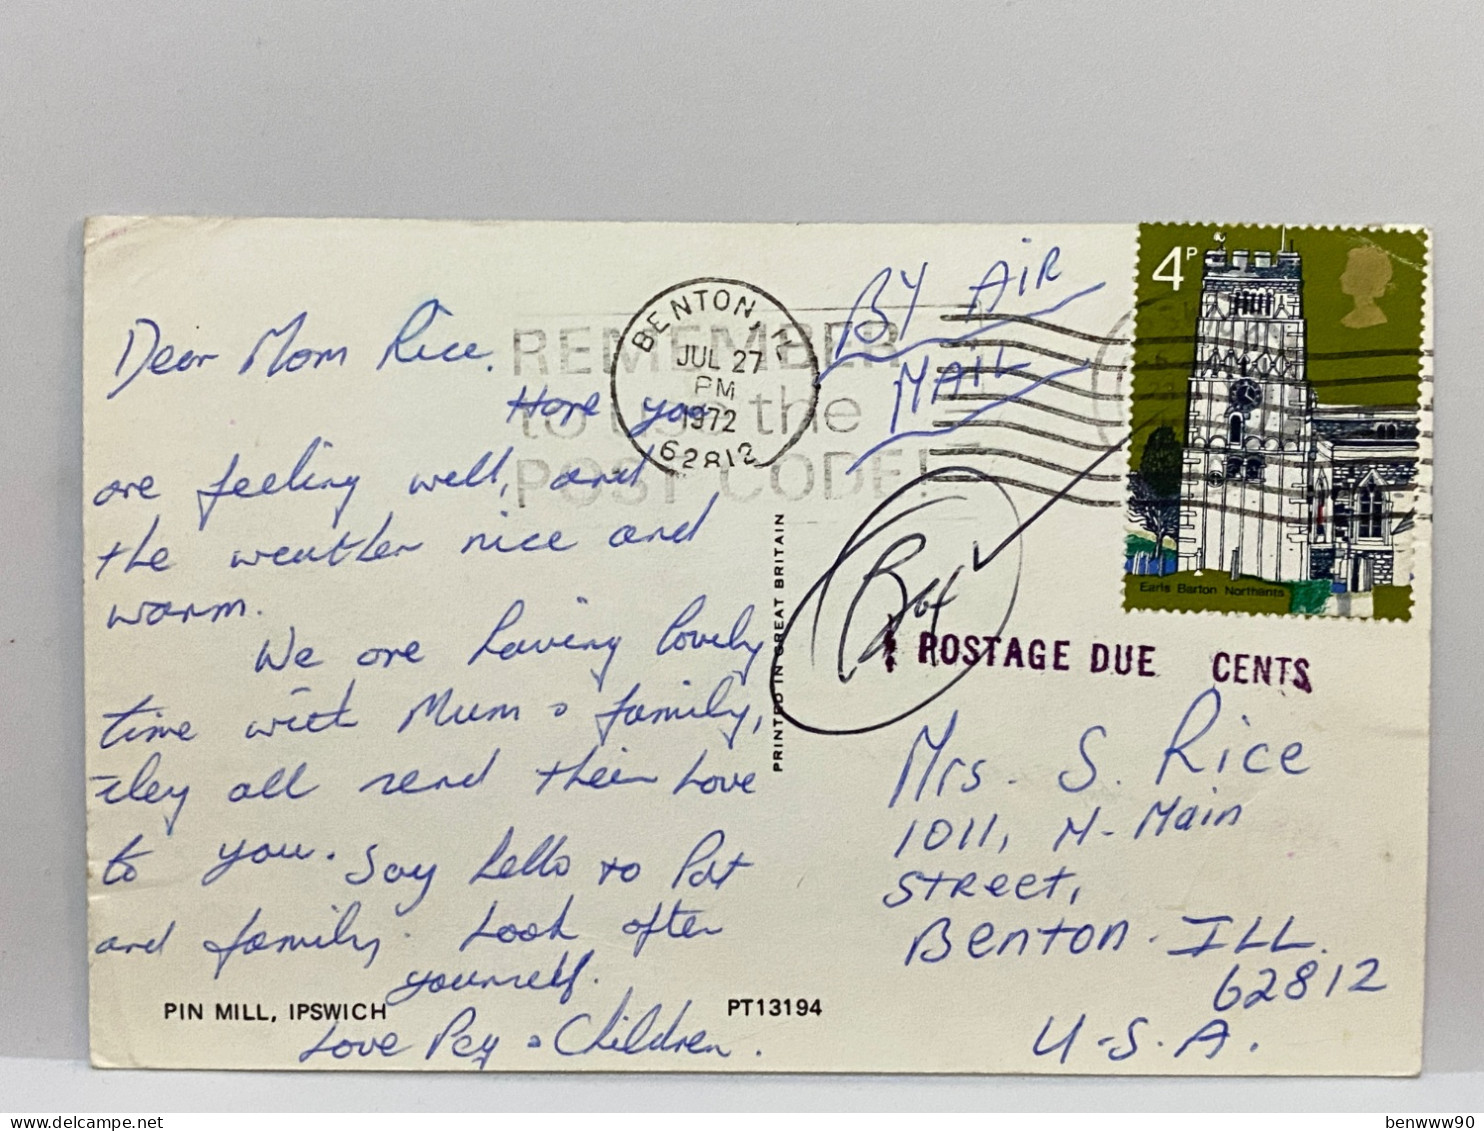 Dear Mom Rice.
Hope you
are feeling well, and
the weather nice and
warm.
We are having lovely
time with Mum & family,
they all send their love
to you. Say hello to Pat
and family. Look after
yourself.
Love Peg & Children.
PIN MILL, IPSWICH
PT13194
PRINTED IN GREAT BRITAIN
REMEMBER
to use the
POST CODE!
BENTON, IL
JUL 27
PM
1972
62812
BY AIR
MAIL
4P
Earls Barton Northants
POSTAGE DUE CENTS
Mrs. S. Rice
1011, N. Main
Street,
Benton. ILL.
62812
U.S.A.
benwww90